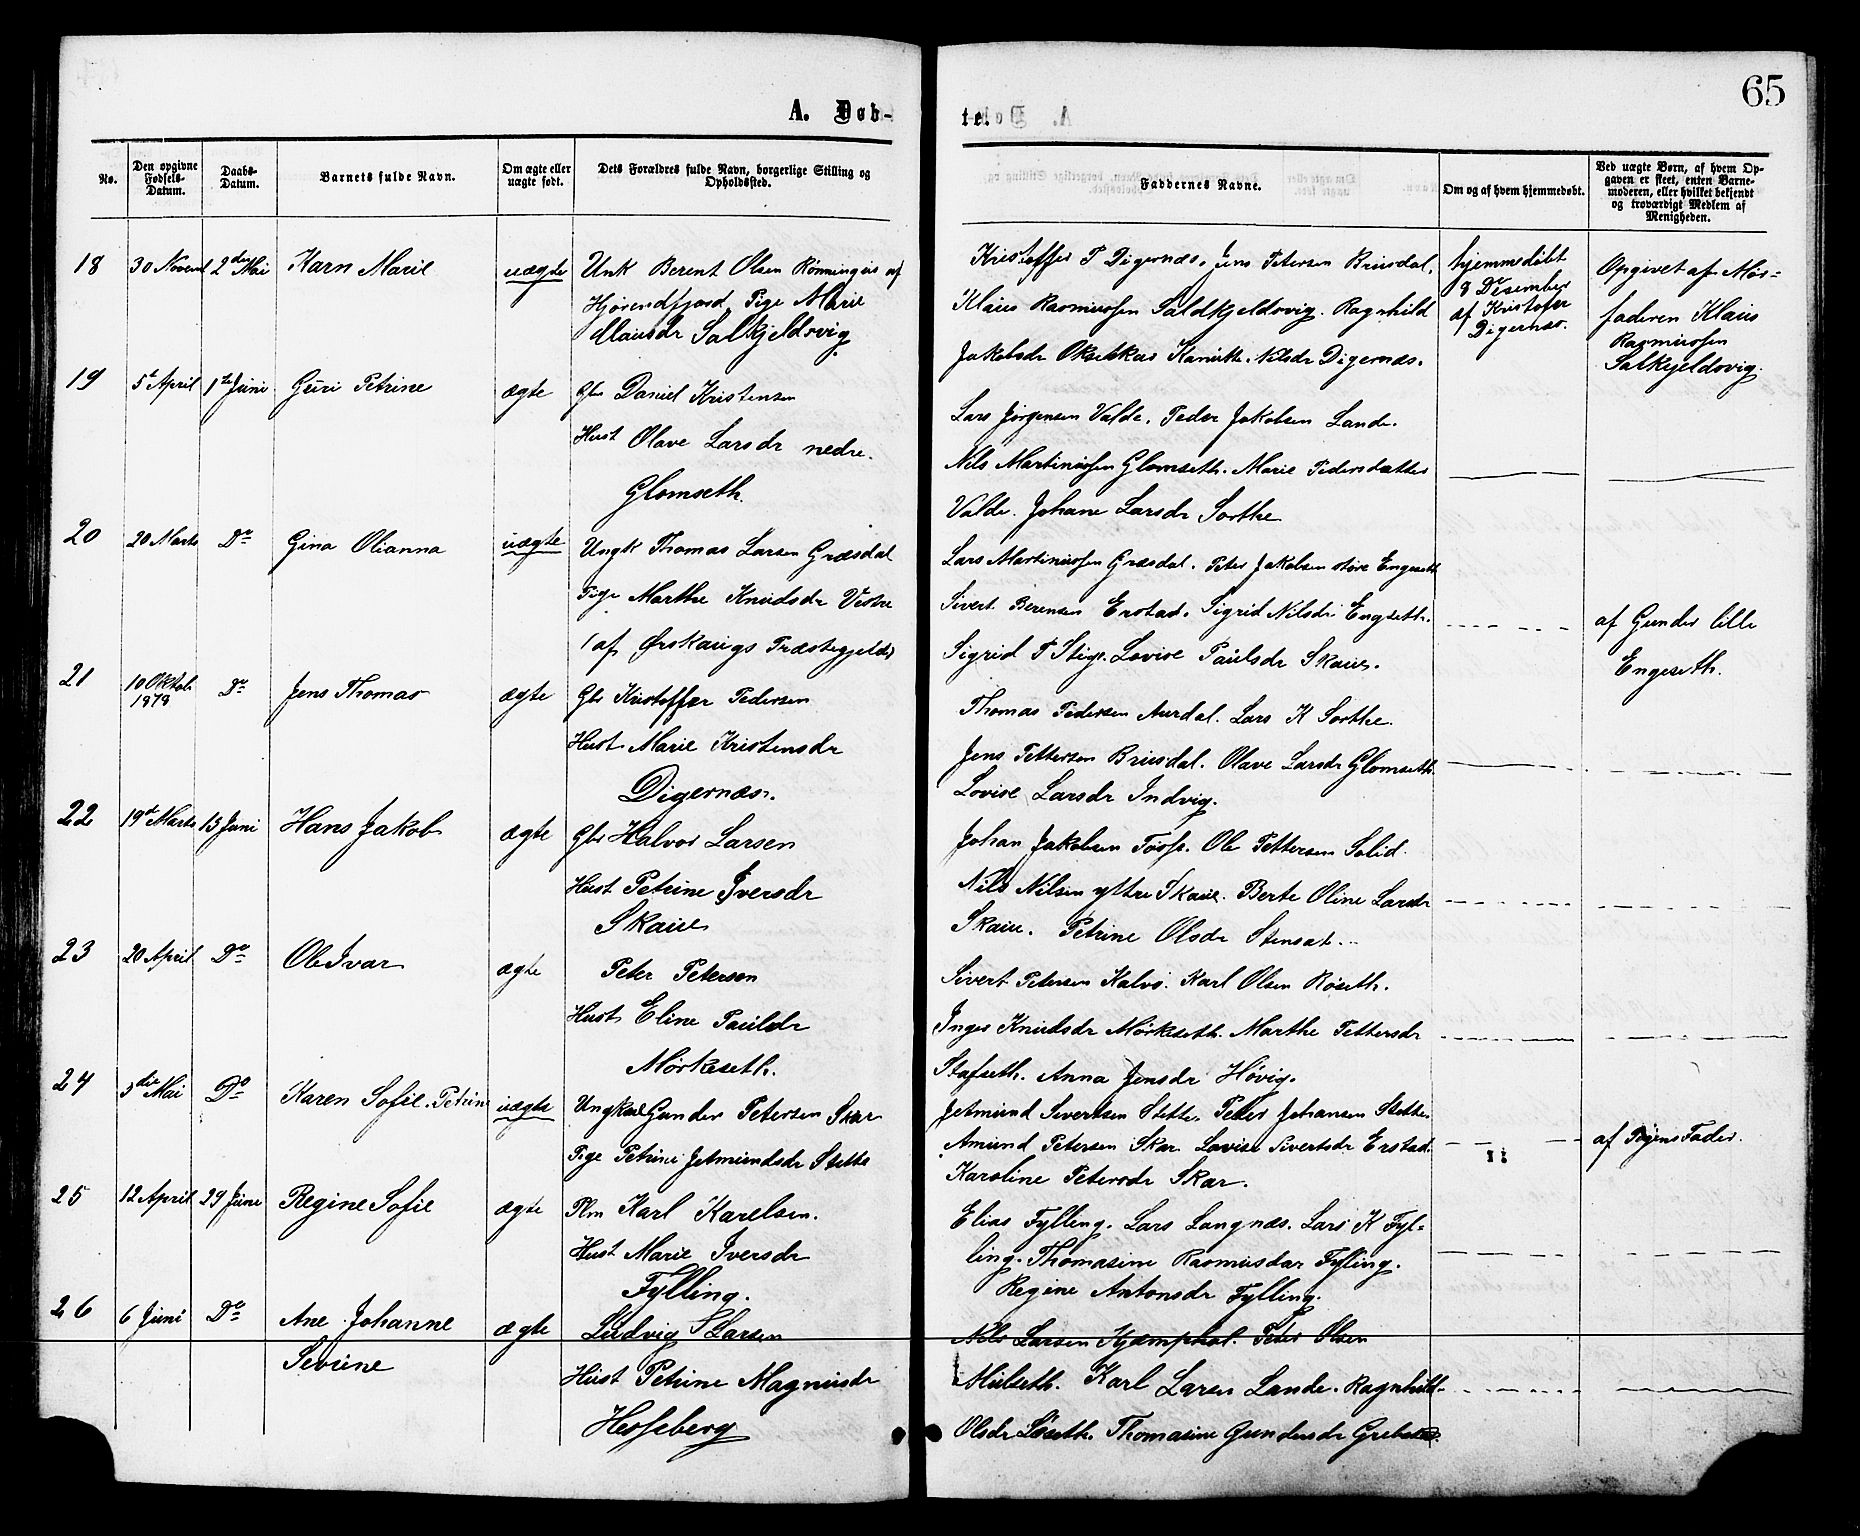 65
A. Døb-
te.
No.
Den opgivne Fødsels-Datum.
Daabs-Datum.
Barnets fulde Navn.
Om ægte eller uægte født.
Dets Forældres fulde Navn, borgerlige Stilling og Opholdssted.
Faddernes Navne.
Om og af hvem hjemmedøbt.
Ved uægte Børn, af hvem Opgaven er skeet, enten Barnemoderen, eller hvilket bekjendt og troværdigt Medlem af Menigheden.
18 30 Novemb 2den Mai Karn Marie uægte
Unk Berent Olsen Rønningen af
Hjørendfjord, Pige Marie
Clausdr Salkjeldsvig
Kristoffer P Digernæs, Jens Petersen Brusdal,
Klaus Rasmussen Saldkjeldsvig. Ragnhild
Jakobsdr Nilsdr Digernæs.
hjemmedøbt
8 Desember
af Kristofer
Digernæs.
Opgivet af Mor-
faderen Klaus
Rasmussen
Salkjeldsvig.
19 5t April 1te Juni Guri Petrine ægte
Gbr Daniel Kristensen
Hust Olave Larsdr nedre
Glomseth.
Lars Jørgensen Valde. Peder Jakobsen Lande.
Nils Martinussen Glomseth. Marie Pedersdatter
Valde. Johane Larsdr Sorthe
20 20 Marts Do Gina Olianna uægte
Ungk Thomas Larsen Græsdal
Pige Marthe Knudsdr Vestre
(af Ørskougs Præstegjeld)
Lars Martinussen Græsdal. Peter Jakobsen støre Engeseth
Sivert Berensen Erstad. Sigrid Nilsdr Engseth.
Sigrid P Stige. Lovise Paulsdr Skaue.
af Gunder lille
Engeseth.
21 10 Oktob 1878 Do Jens Thomas ægte
Gbr Kristoffer Pedersen
Hust Marie Kristensdr
Digernæs.
Thomas Pedersen Aurdal. Lars K Sorthe.
Jens Pettersen Brusdal. Olave Larsdr Glomseth.
Lovise Larsdr Indvig.
22 19de Marts 13 Juni Hans Jakob ægte
Gbr Halvor Larsen
Hust Petrine Iversdr
Skaue
Johan Jakobsen Ole Pettersen Solid.
Nils Nilsen yttre Skaue. Berte Oline Larsdr
Skaue. Petrine Olsdr Stensat.
23 20 April Do Ole Ivar ægte
Peter Peterson
Hust Eline Paulsdr
Mørkeseth.
Sivert Petersen Kalvø. Karl Olsen Røseth.
Inger Knudsdr Mørkeseth. Marthe Pettersdr
Stafseth. Anna Jensdr Høvig.
24 3die Mai Do Karen Sofie. Petrine uægte
Ungkarl Gunder Petersen Skar
Pige Petrine Jetmundsdr Stette
Jetmund Sivertsen Stette. Peter Johansen Stette.
Amund Petersen Skar Lovise Sivertsdr Erstad.
Karoline Petersdr Skar.
af Pigens Fader.
25 12 April 29 Juni Regine Sofie ægte
Plm Karl Karelsen.
Hust Marie Iversdr
Fylling.
Elias Fylling. Lars Langnæs. Lars K Fyl-
ling. Thomasine Rasmusdar Fylling.
Regine Antonsdr Fylling.
26 6 Juni Do Ane Johanne
Sevrine ægte
Ludvig Larsen
Hust Petrine Magnusdr
Hesseberg
Nils Larsen Kjæmphol. Peter Olsen
Mulseth. Karl Larsen Lande. Ragnhild
Olsdr Løseth. Thomasine Gundersdr